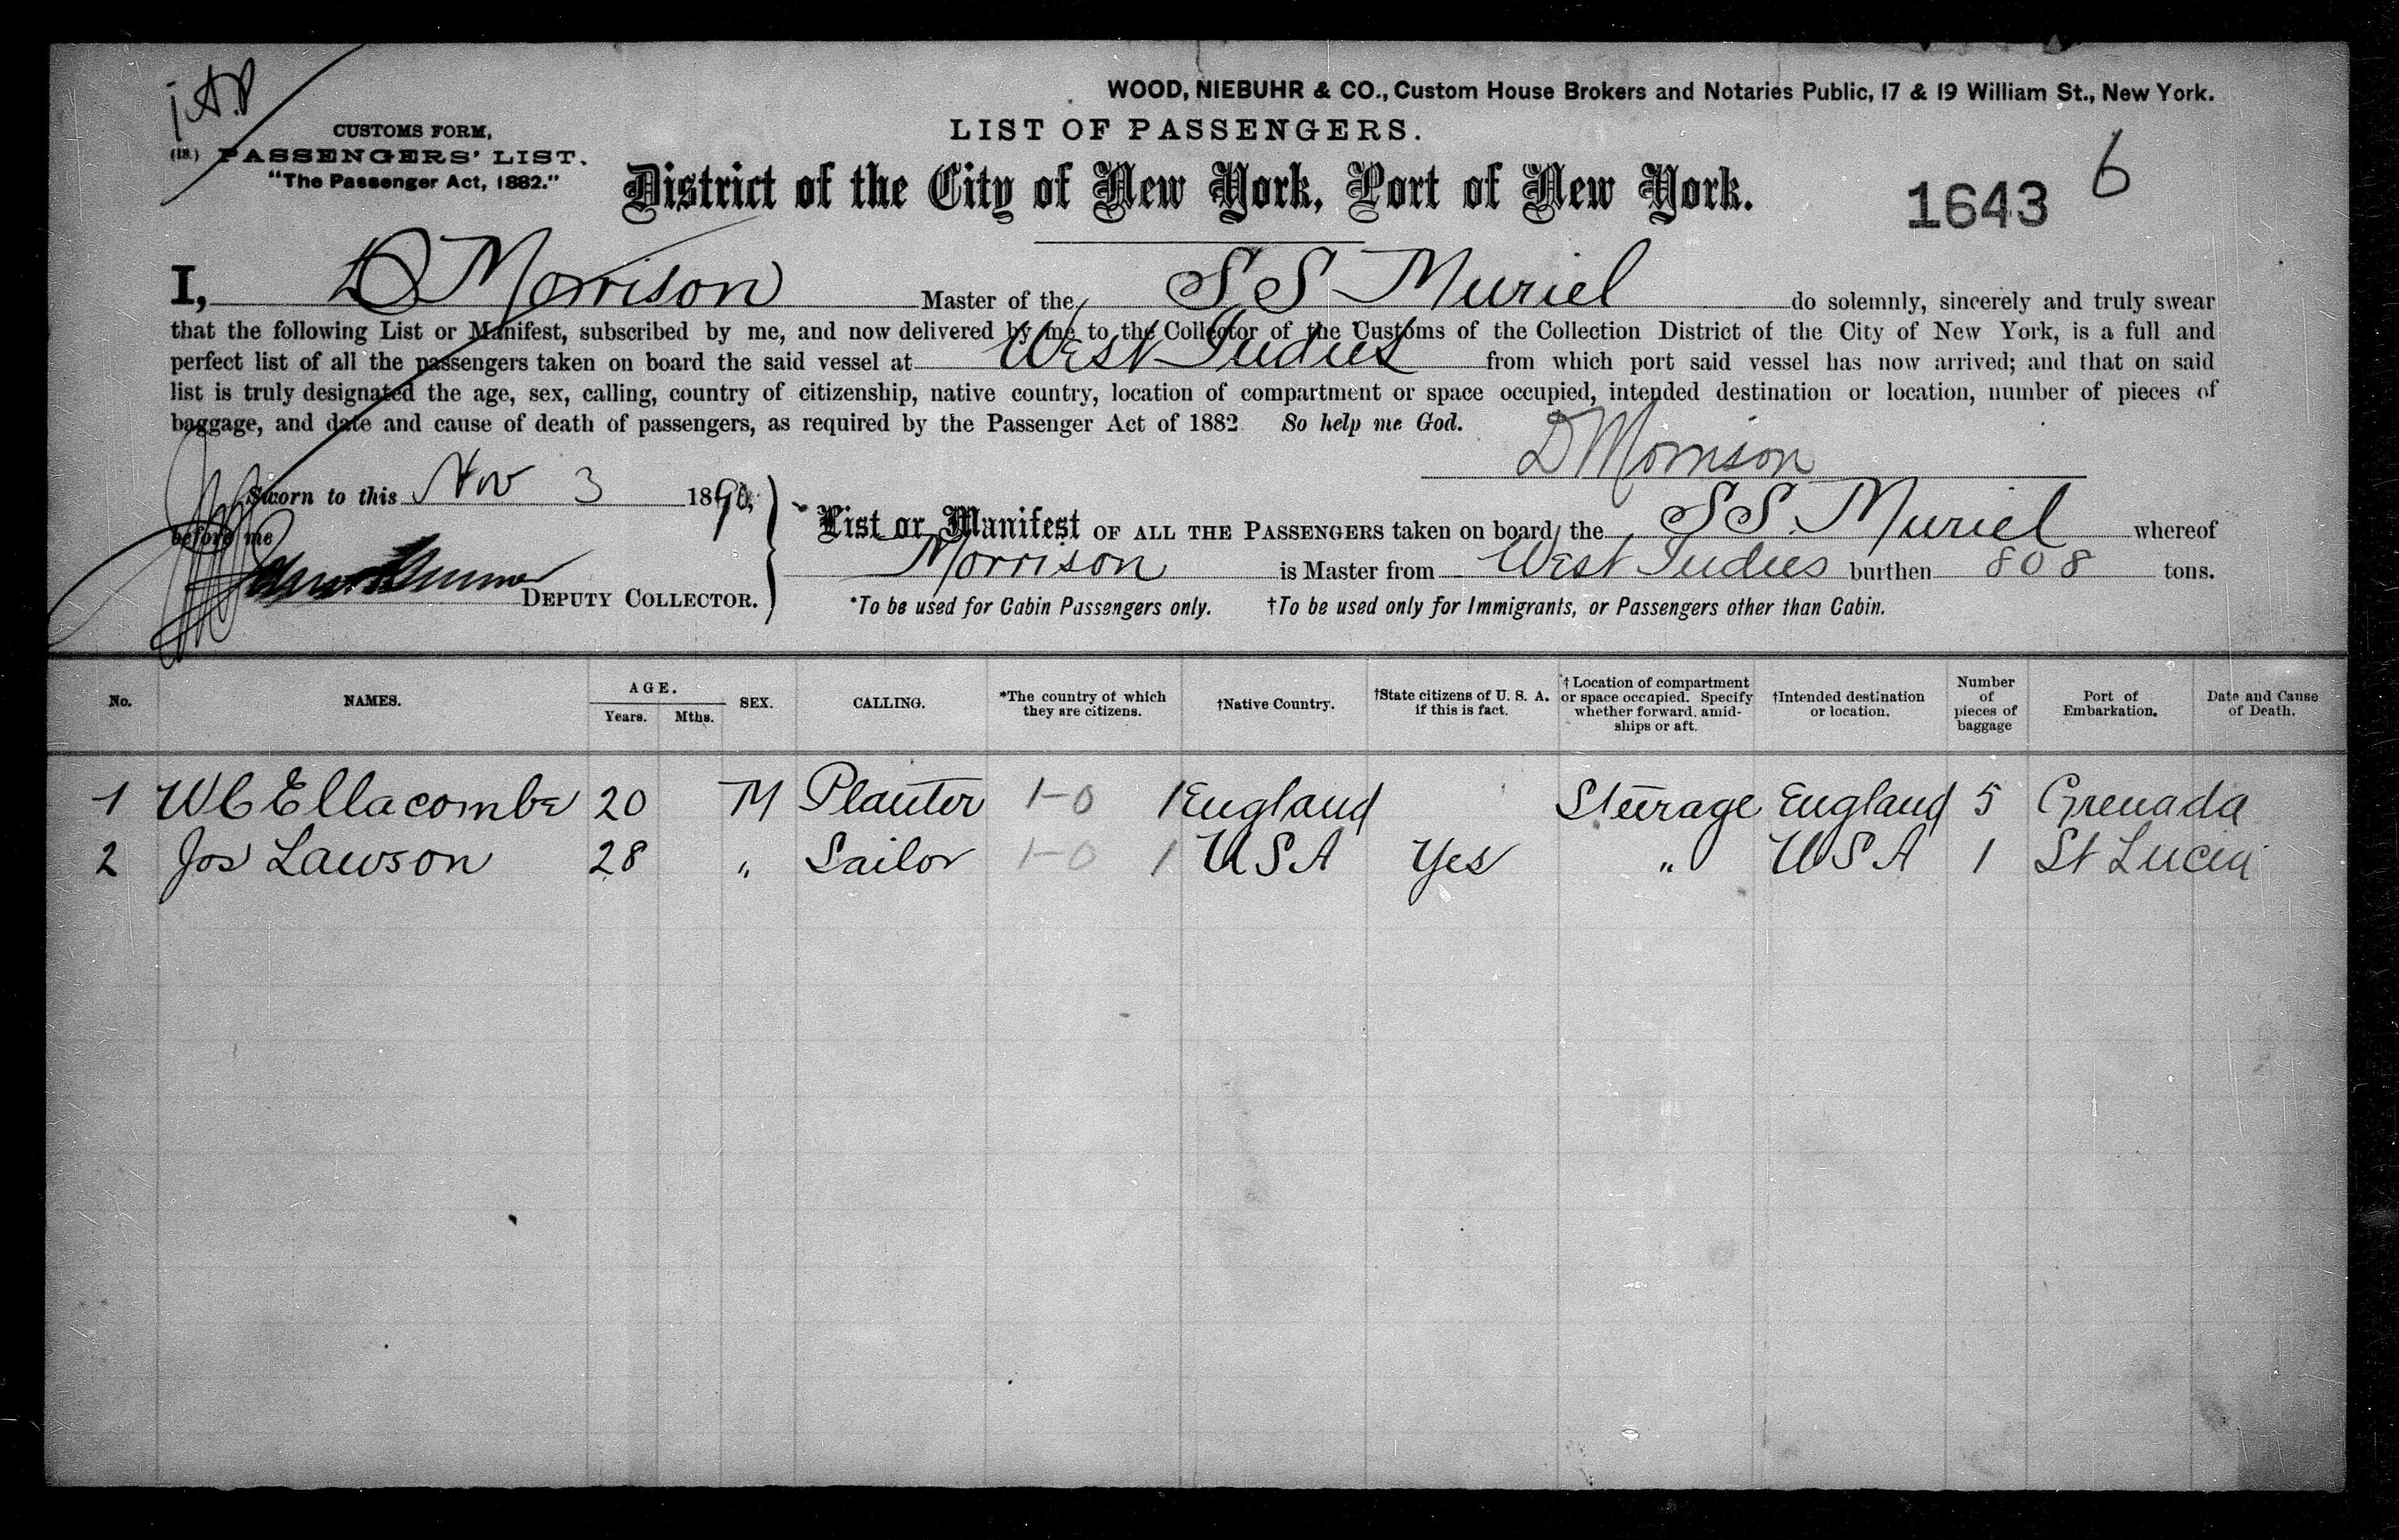 WOOD, NIEBUHR & CO., Custom House Brokers and Notaries Public, 17 & 19 William St., New York.
CUSTOMS FORM,
(18.) PASSENGERS' LIST.
"The Passenger Act, 1882."
LIST OF PASSENGERS.
District of the City of New York, Port of New York.
1643 6
I, D Morrison Master of the SS Muriel do solemnly, sincerely and truly swear
that the following List or Manifest, subscribed by me, and now delivered by me to the Collector of the Customs of the Collection District of the City of New York, is a full and
perfect list of all the passengers taken on board the said vessel at West Indies from which port said vessel has now arrived; and that on said
list is truly designated the age, sex, calling, country of citizenship, native country, location of compartment or space occupied, intended destination or location, number of pieces of
baggage, and date and cause of death of passengers, as required by the Passenger Act of 1882. So help me God.
D Morrison
Sworn to this Nov 3 1890,
before me
DEPUTY COLLECTOR.
List or Manifest OF ALL THE PASSENGERS taken on board the SS. Muriel whereof
Morrison is Master from West Indies burthen 808 tons.
*To be used for Cabin Passengers only. †To be used only for Immigrants, or Passengers other than Cabin.
No. NAMES. AGE. Years. Mths. SEX. CALLING. *The country of which they are citizens. †Native Country. †State citizens of U. S. A. if this is fact. †Location of compartment or space occupied. Specify whether forward, amid-ships or aft. †Intended destination or location. Number of pieces of baggage Port of Embarkation. Date and Cause of Death.
1 W C Ellacombe 20 M Planter 1-0 1 England Steerage England 5 Grenada
2 Jos Lawson 28 " Sailor 1-0 1 USA Yes " USA 1 St Lucia